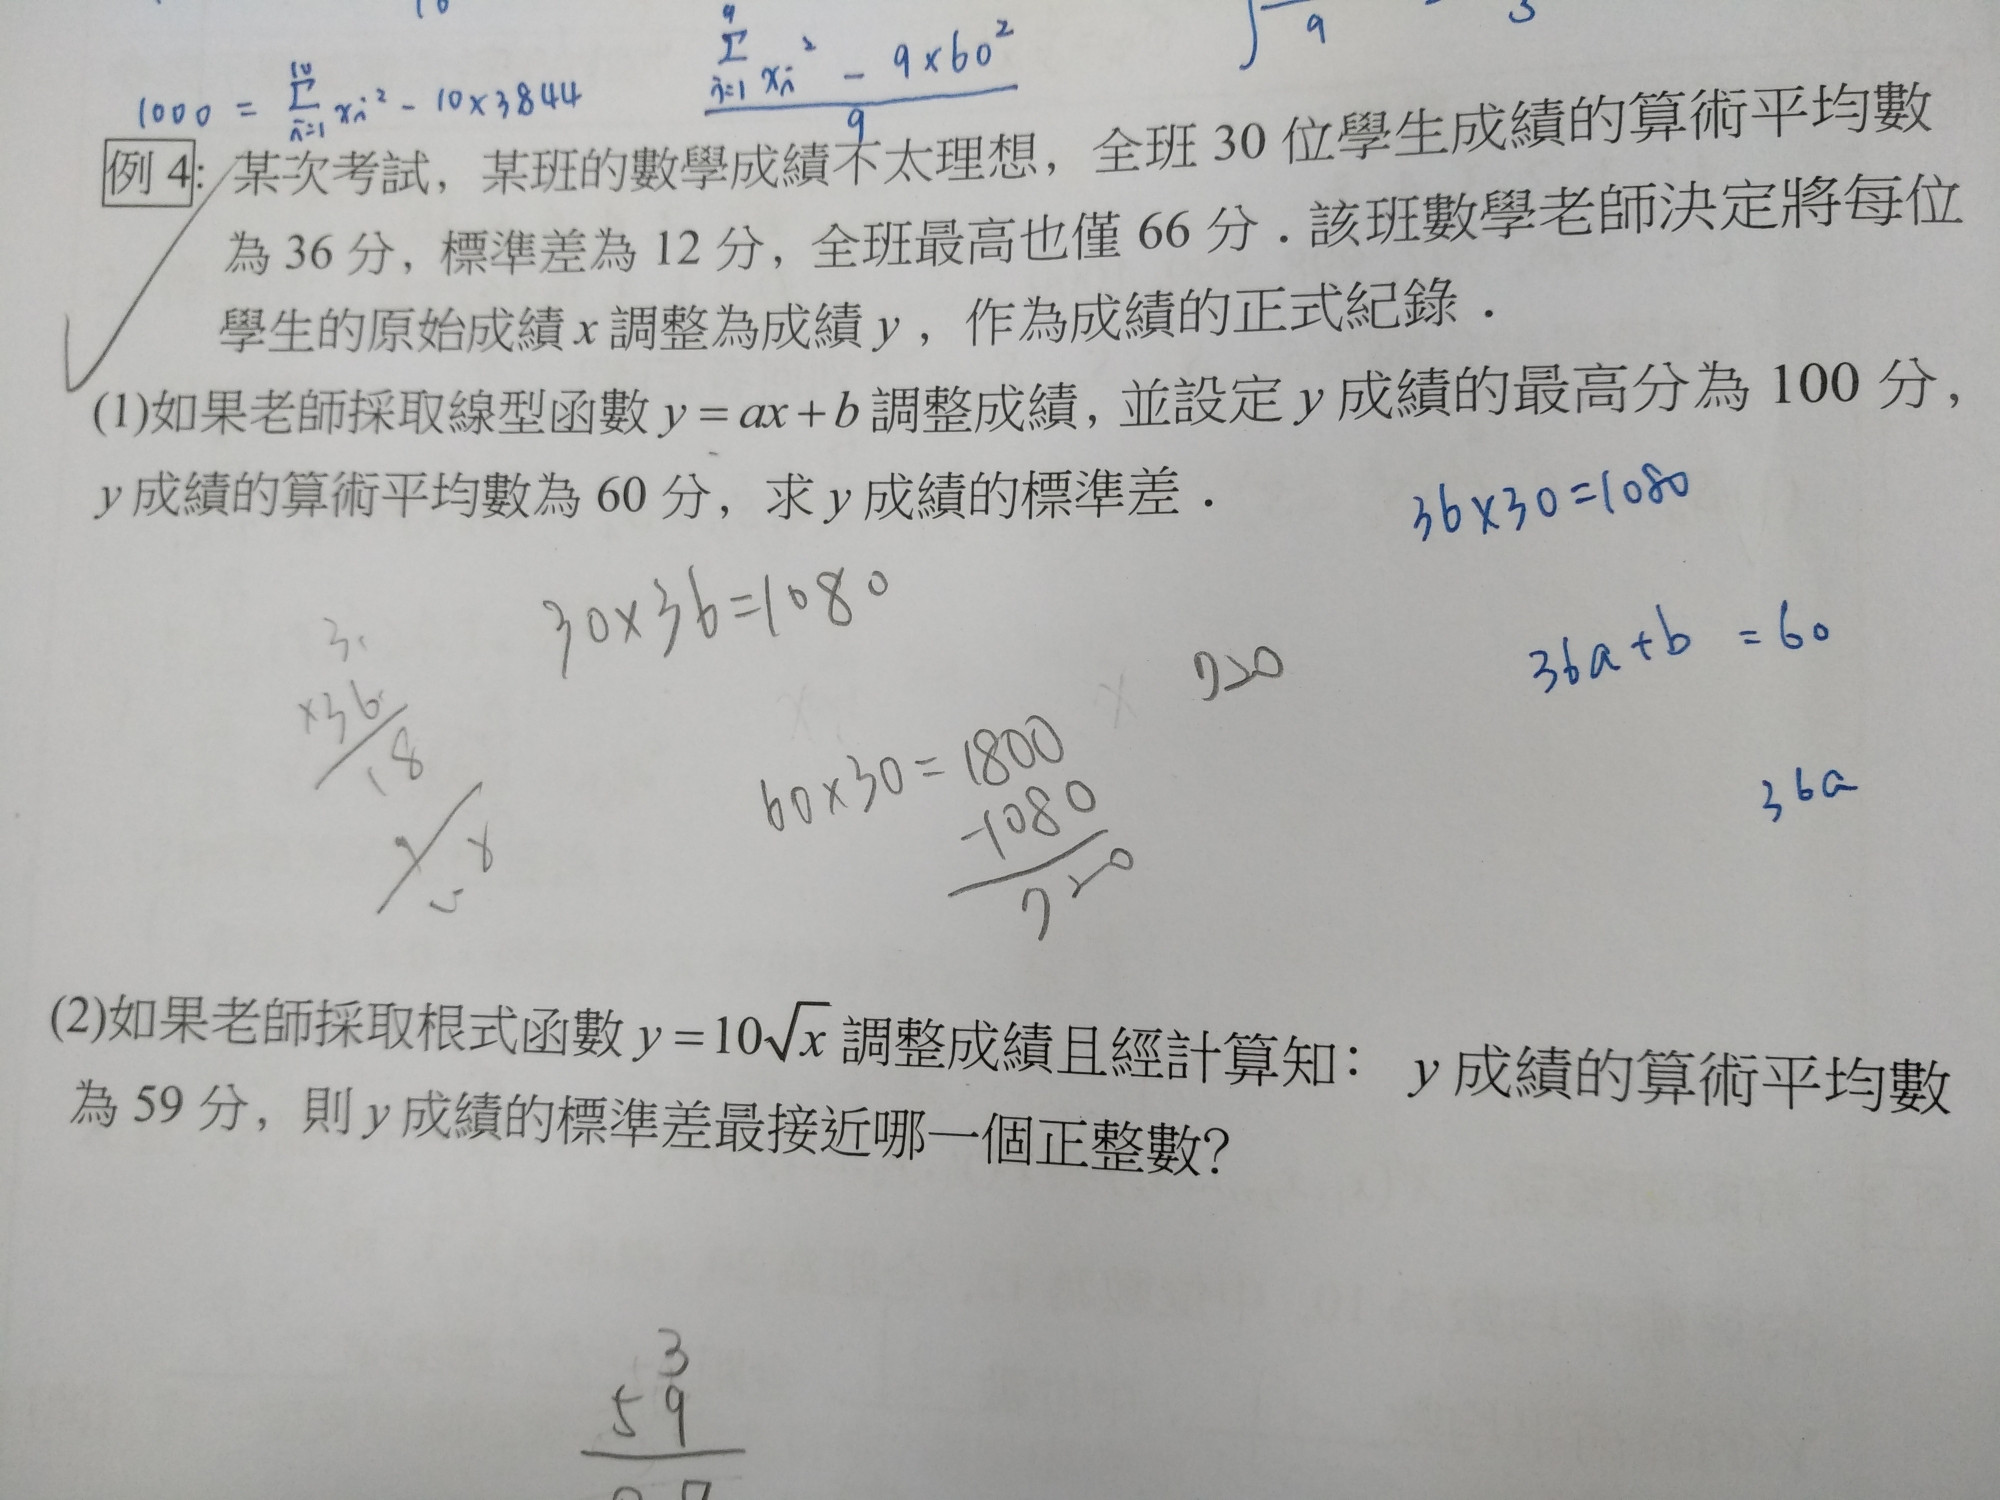 1000 = Σ i=1 10 xi² - 10×3844
Σ i=1 9 xi² - 9×60²
9
9
3
例 4: 某次考試，某班的數學成績不太理想，全班 30 位學生成績的算術平均數
為 36 分，標準差為 12 分，全班最高也僅 66 分．該班數學老師決定將每位
學生的原始成績 x 調整為成績 y，作為成績的正式紀錄．
(1)如果老師採取線型函數 y = ax + b 調整成績，並設定 y 成績的最高分為 100 分，
y 成績的算術平均數為 60 分，求 y 成績的標準差．
36×30=1080
30×36=1080
36a+b = 60
×36
18
720
60×30=1800
-1080
720
36a
(2)如果老師採取根式函數 y = 10√x 調整成績且經計算知： y 成績的算術平均數
為 59 分，則 y 成績的標準差最接近哪一個正整數?
3
59